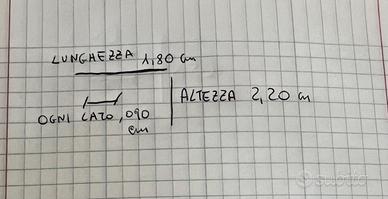 LUNGHEZZA 1,80 cm
ALTEZZA 2,20 cm
OGNI LATO ,090
cm
subito